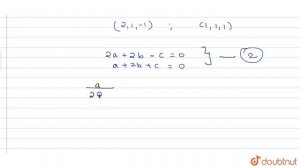 (2,1,-1) ; (1,1,1)
2a + 2b - c = 0
a + 2b + c = 0
2
a
2
doubtnut